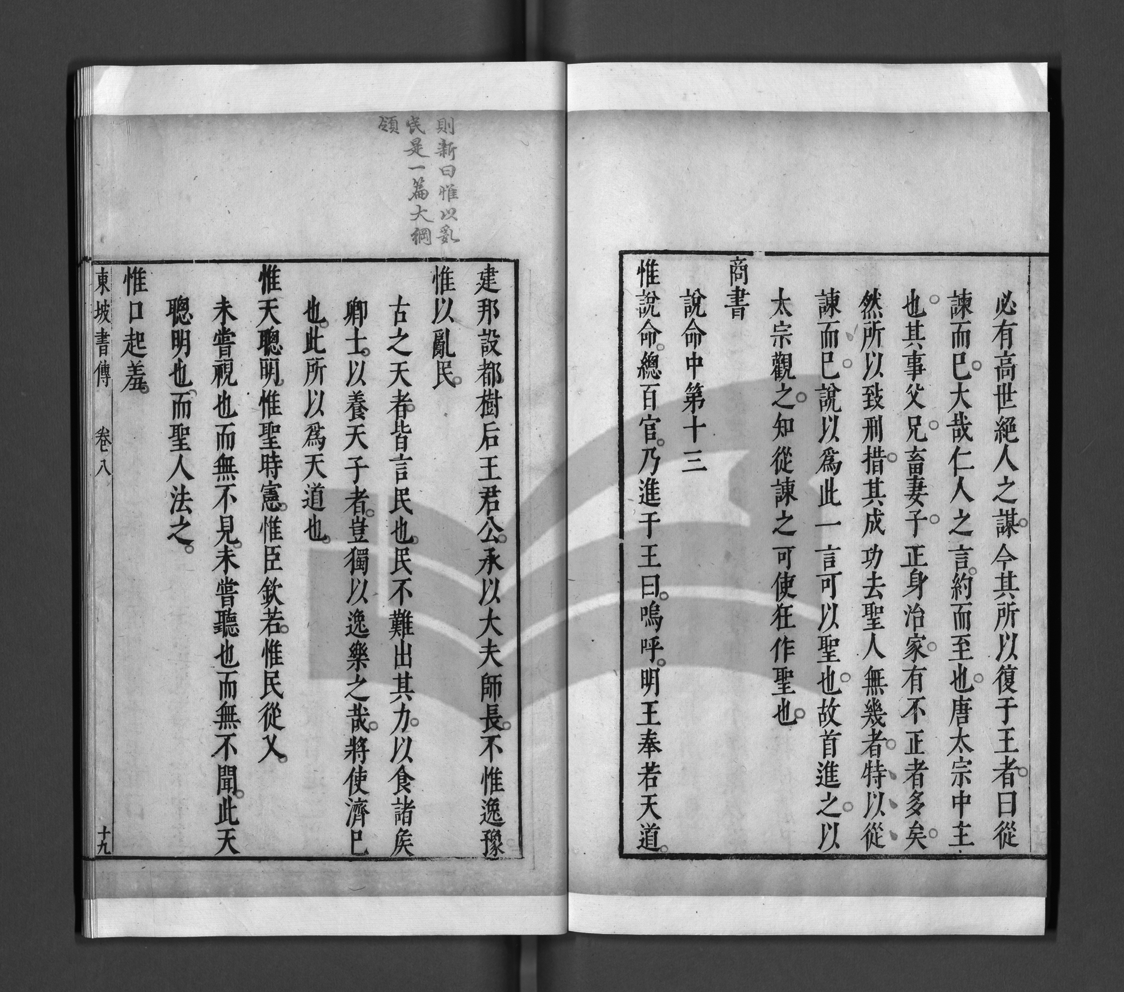 必有高世絕人之謀今其所以復于王者曰從
諫而已大哉仁人之言約而至也唐太宗中主
也其事父兄畜妻子正身治家有不正者多矣
然所以致刑措其成功去聖人無幾者特以從
諫而已說以為此一言可以聖也故首進之以
太宗觀之知從諫之可使狂作聖也
商書
說命中第十三
惟說命總百官乃進于王曰嗚呼明王奉若天道
則新曰惟以亂
民是一篇大綱
領
建邦設都樹后王君公承以大夫師長不惟逸豫
惟以亂民
古之天者皆言民也民不難出其力以食諸矦
卿士以養天子者豈獨以逸樂之哉將使濟已
也此所以為天道也
惟天聰明惟聖時憲惟臣欽若惟民從乂
未嘗視也而無不見未嘗聽也而無不聞此天
聰明也而聖人法之
惟口起羞
東坡書傳 卷八 十九